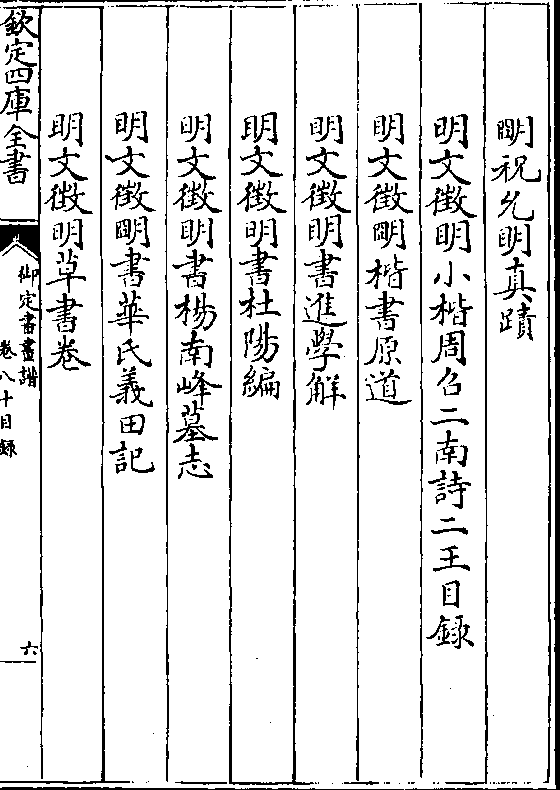 明祝允明真蹟
明文徴明小楷周召二南詩二王目録
明文徴明楷書原道
明文徴明書進學解
明文徴明書杜陽編
明文徴明書楊南峰墓志
明文徴明書華氏義田記
明文徴明草書卷
欽定四庫全書
御定書畫譜
卷八十目録
六